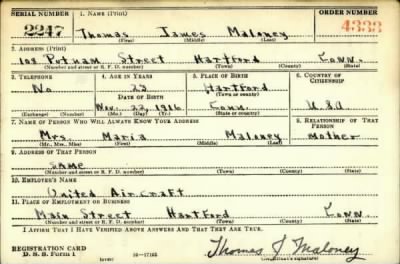 SERIAL NUMBER 1. NAME (Print) ORDER NUMBER
2247 Thomas James Maloney 4333
(First) (Middle) (Last)
2. ADDRESS (Print)
108 Putnam Street Hartford Conn.
(Number and street or R. F. D. number) (Town) (County) (State)
3. TELEPHONE 4. AGE IN YEARS 5. PLACE OF BIRTH 6. COUNTRY OF CITIZENSHIP
No 23 Hartford
DATE OF BIRTH (Town or county)
Nov. 22, 1916 Conn. U.S.A
(Exchange) (Number) (Mo.) (Day) (Yr.) (State or country)
7. NAME OF PERSON WHO WILL ALWAYS KNOW YOUR ADDRESS 8. RELATIONSHIP OF THAT PERSON
Mrs. Maria Maloney Mother
(Mr., Mrs., Miss) (First) (Middle) (Last)
9. ADDRESS OF THAT PERSON
SAME
(Number and street or R. F. D. number) (Town) (County) (State)
10. EMPLOYER'S NAME
United Aircraft
11. PLACE OF EMPLOYMENT OR BUSINESS
Main Street Hartford Conn.
(Number and street or R. F. D. number) (Town) (County) (State)
I AFFIRM THAT I HAVE VERIFIED ABOVE ANSWERS AND THAT THEY ARE TRUE.
REGISTRATION CARD
D. S. S. Form 1 (over) 16-17105 Thomas J Maloney
(Registrant's signature)